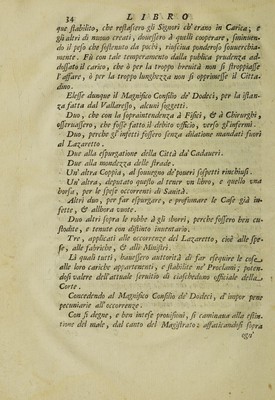 34 LIBRO
que stabilito, che restassero gli Signori ch'erano in Carica; e
gli altri di nuovo creati, dovessero à quelli cooperare, sminuen-
do il peso che sostenuto da pochi, riusciva ponderoso souuerchia-
mente. Fù con tale temperamento dalla publica prudenza ad-
dossato il carico, che ò per la troppo breuità non si stroppiasse
l'affare, ò per la troppo lunghezza non si opprimesse il Citta-
dino.
Elesse dunque il Magnifico Consilio de' Dodeci, per la istan-
za fatta dal Vallaresso, alcuni soggetti.
Duo, che con la sopraintendenza à Fisici, & à Chirurghi,
osseruassero, che fosse fatto il debito officio, verso gl'infermi.
Duo, perche gl'infetti fossero senza dilatione mandati fuori
al Lazaretto.
Due alla espurgatione della Città da' Cadaueri.
Due alla mondezza delle strade.
Un' altra Coppia, al souuegno de' poueri sospetti rinchiusi.
Un' altra, deputato quello al tener un libro, e quello vna
borsa, per le spese occorrenti di Sanità.
Altri duo, per far espurgare, e profumare le Case già in-
fette, & allhora vuote.
Duo altri sopra le robbe à gli sborri, perche fossero ben cu-
stodite, e tenute con distinto inuentario.
Tre, applicati alle occorrenze del Lazaretto, cioè alle spe-
se, alle fabriche, & alli Ministri.
Li quali tutti, hauessero auttorità di far eseguire le cose
alle loro cariche appartenenti, e stabilite ne' Proclami; poten-
dosi valere dell'attuale seruitio di ciascheduno officiale della
Corte.
Concedendo al Magnifico Consilio de' Dodeci, d'impor pene
pecuniarie all'occorrenze.
Con si degne, e ben intese prouisioni, si caminaua alla estin-
tione del male, dal canto del Magistrato: affaticandosi sopra
ogn'